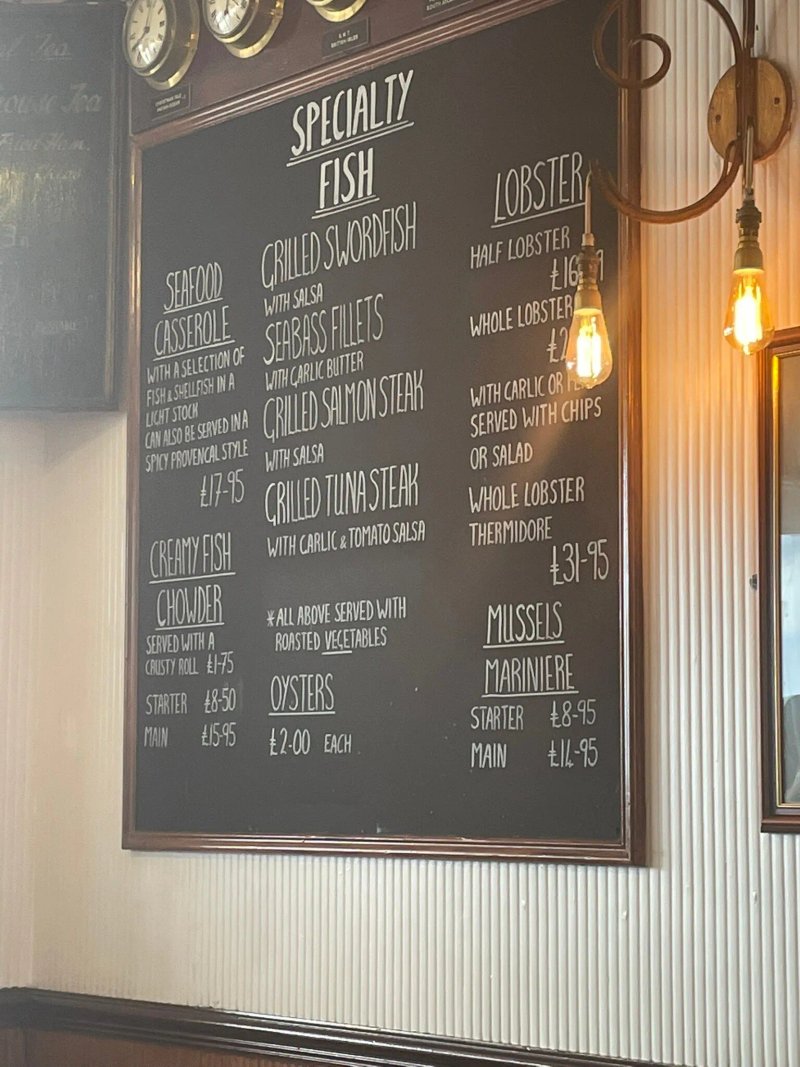 SPECIALTY
FISH
GRILLED SWORDFISH
WITH SALSA
SEABASS FILLETS
WITH GARLIC BUTTER
GRILLED SALMON STEAK
WITH SALSA
GRILLED TUNA STEAK
WITH GARLIC & TOMATO SALSA
*ALL ABOVE SERVED WITH
ROASTED VEGETABLES
OYSTERS
£2-00 EACH
SEAFOOD
CASSEROLE
WITH A SELECTION OF
FISH & SHELLFISH IN A
LIGHT STOCK
CAN ALSO BE SERVED IN A
SPICY PROVENCAL STYLE
£17-95
CREAMY FISH
CHOWDER
SERVED WITH A
CRUSTY ROLL £1-75
STARTER £8-50
MAIN £15-95
LOBSTER
HALF LOBSTER
WHOLE LOBSTER
WITH GARLIC OR
SERVED WITH CHIPS
OR SALAD
WHOLE LOBSTER
THERMIDORE
£31-95
MUSSELS
MARINIERE
STARTER £8-95
MAIN £14-95
G.M.T
BRITISH ISLES
Tea